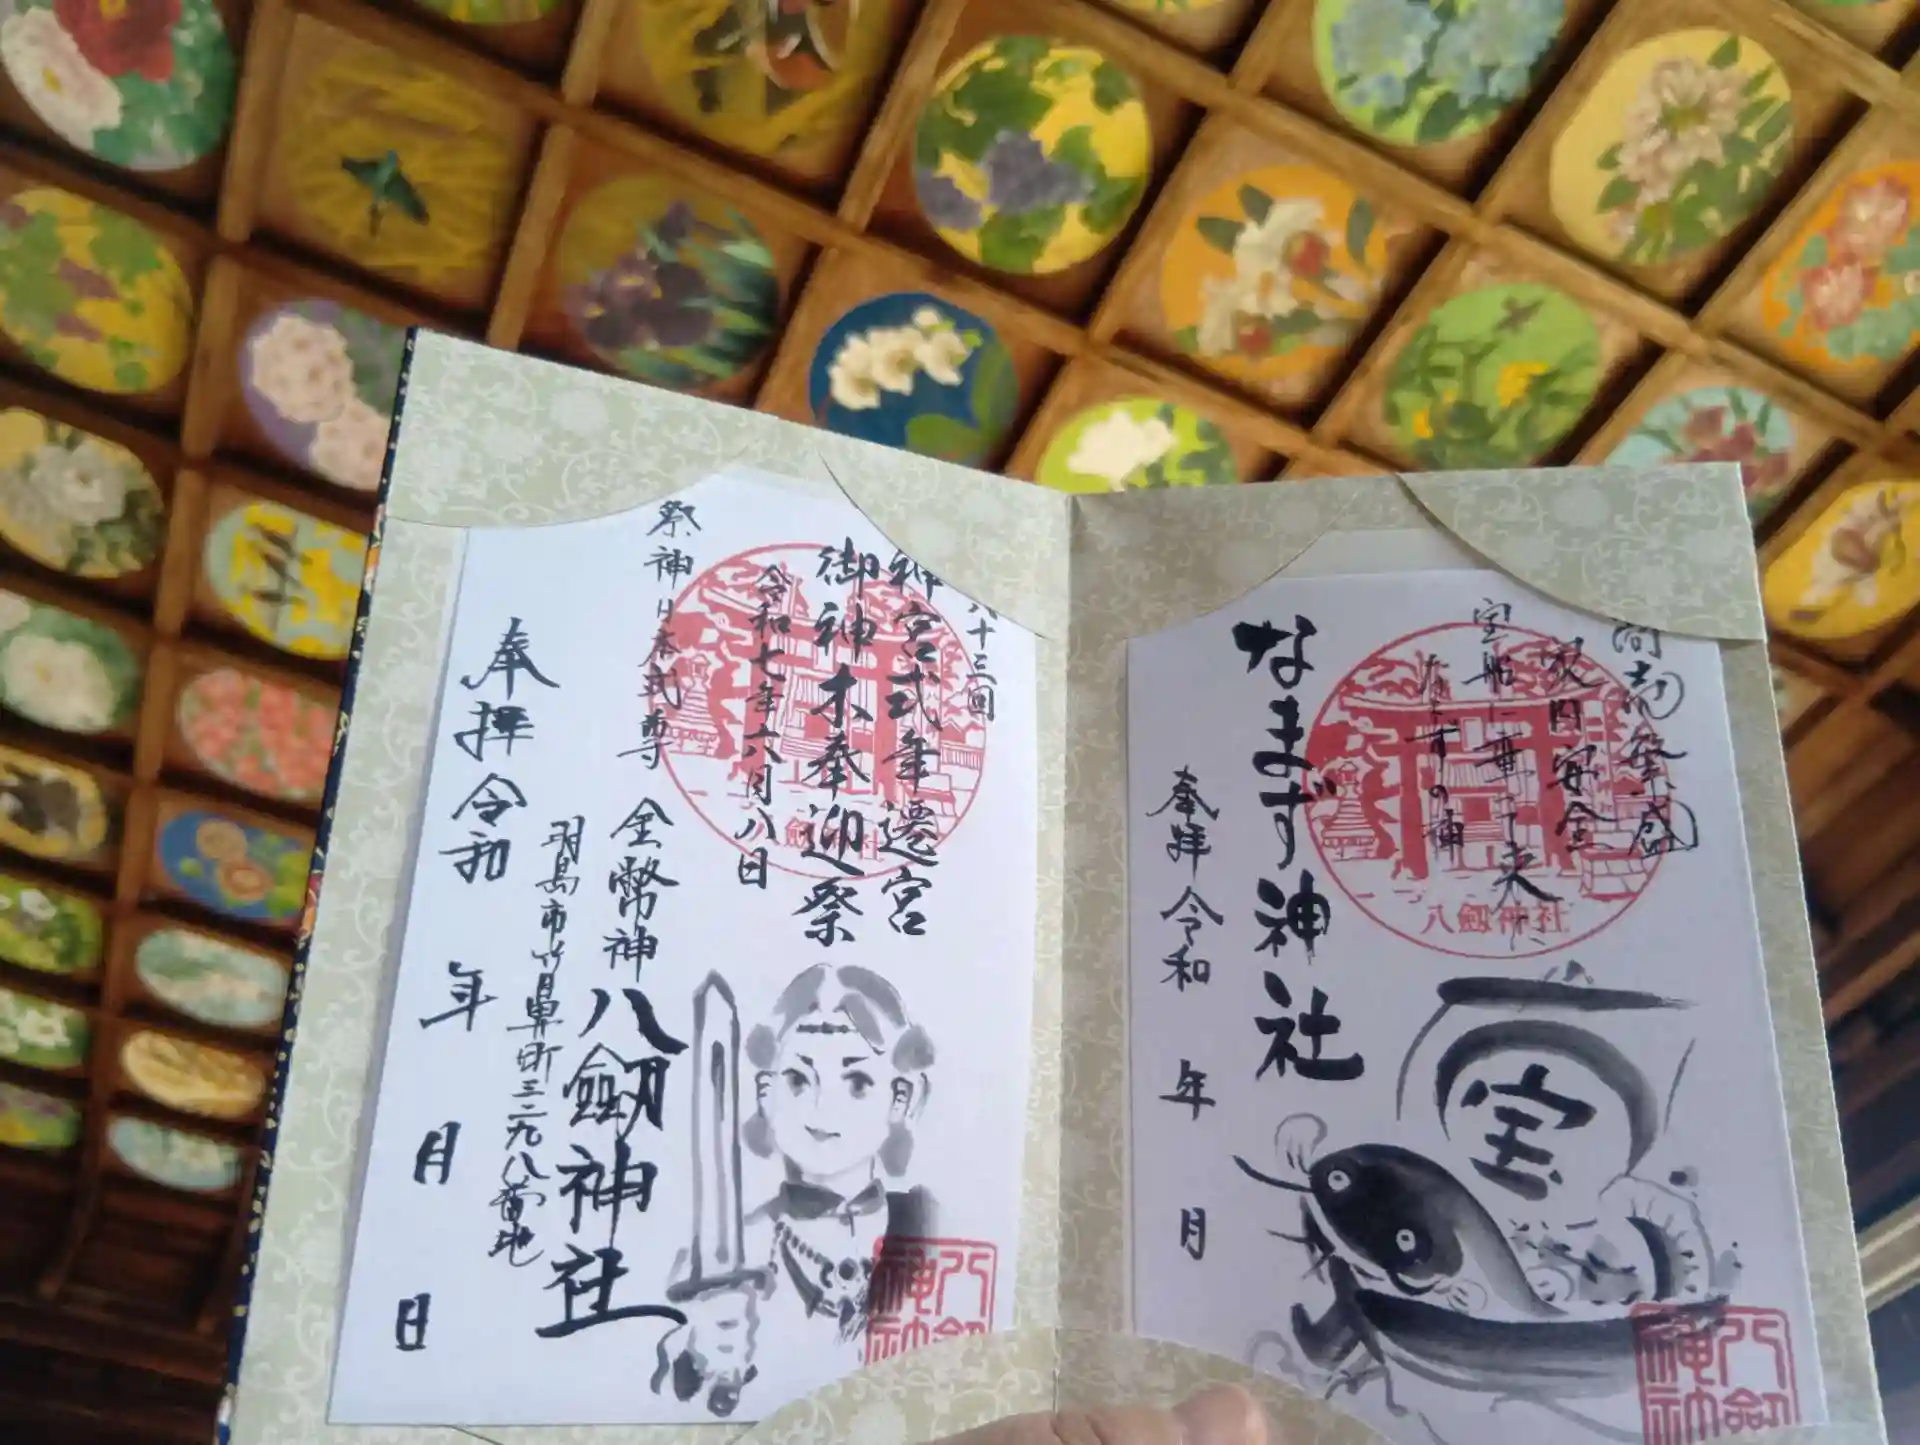 八十三回
神宮式年遷宮
御神木奉迎祭
令和七年六月八日
祭神日本武尊
金幣神
八劔神社
羽島市竹鼻町三二九八番地
奉拝令和
年
月
日
八劔神社
商売繁盛
家内安全
宝船に乗って来た
なまずの神
なまず神社
奉拝令和
年
月
八劔神社
宝
八劔神社